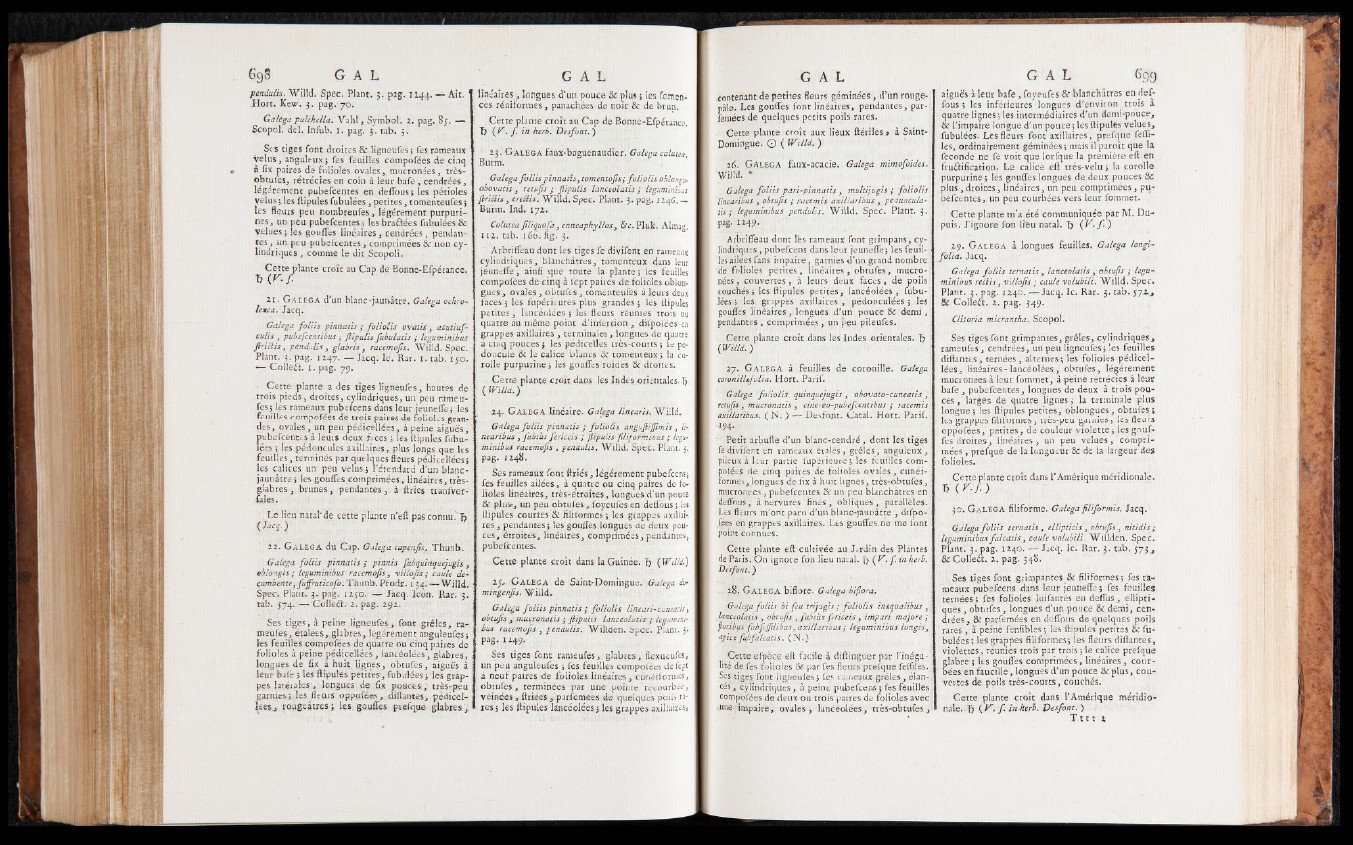 698 G A L
pendulis. Willd. Spec. Plant. 3. pag. 1244. — Ait.
Hort. Kew. 3. pag. 70.
Galega pulchella. Vahl, Symbol. 2. pag. 85. —
Scopol. del. Insub. 1. pag. 3. tab. 3.
Ses tiges sont droites & ligneuses ; ses rameaux
velus, anguleux ; ses feuilles composées de cinq
à six paires de folioles ovales, mucronées, très-
obtuses, rétrécies en coin à leur base, cendrées,
légérement pubescentes en dessous ; les pétioles
velus ; les stipules subulées, petites, tomenteuses ;
les fleurs peu nombreuses, légérement purpuri-
nes, un peu pubescentes ; les bractées subulées &
velues ; les gousses linéaires, cendrées, pendan-
tes, un peu pubescentes, comprimées & non cy-
lindriques, comme le dit Scopoli.
Cette plante croît au Cap de Bonne-Espérance.
♄ (V. s.
21. GALEGA d'un blanc-jaunâtre. Galega ochro-
leuca. Jacq.
Galega foliis pinnatis ; foliolis ovatis, acutius-
culis, pubescentibus ; stipulis subulatis ; leguminibus
strictis, pendulis, glabris, racemosis. Willd. Spec.
Plant. 3. pag. 1247. — Jacq. Ic. Rar. 1. tab. 150.
— Collect. 1. pag. 79.
Cette plante a des tiges ligneuses, hautes de
trois pieds, droites, cylindriques, un peu rameu-
ses ; les rameaux pubescens dans leur jeunesse ; les
feuilles composées de trois paires de folioles gran-
des, ovales, un peu pédicellées, à peine aiguës,
pubescentes à leurs deux faces ; les stipules subu-
lées ; les pédoncules axillaires, plus longs que les
feuilles, terminés par quelques fleurs pédicellées ;
les calices un peu velus ; l'étendard d'un blanc-
jaunâtre ; les gousses comprimées, linéaires, très-
glabres, brunes, pendantes, à stries transver-
sales.
Le lieu natal de cette plante n'est pas connu. ♄
(Jacq.)
22. GALEGA du Cap. Galega capensis. Thunb.
Galega foliis pinnatis ; pinnis subquinquejugis,
oblongis ; leguminibus racemosis, villosis ; caule de-
cumbente, suffruticoso. Thunb. Prodr. 134. — Willd.
Spec. Plant. 3. pag. 1250. — Jacq. Icon. Rar. 3.
tab. 574. — Collect. 2. pag. 292.
Ses tiges, à peine ligneuses, sont grêles, ra-
meuses, étalées, glabres, légérement anguleuses ;
les feuilles composées de quatre ou cinq paires de
folioles à peine pédicellées, lancéolées, glabres,
longues de six à huit lignes, obtuses, aiguës à
leur base ; les stipules petites, subulées ; les grap-
pes latérales, longues de six pouces, très-peu
garnies ; les fleurs opposées, distantes, pédicel-
lées, rougeâtres ; les gousses presque glabres,
G A L
linéaires, longues d'un pouce & plus ; les semen-
ces réniformes, panachées de noir & de brun.
Cette plante croît au Cap de Bonne-Espérance.
♄ (V. s. in herb. Desfont.)
23. GALEGA faux-baguenaudier. Galega colutea.
Burm.
Galega foliis pinnatis, tomentosis ; foliolis oblongo-
obovatis, retusis ; stipulis lanceolatis ; leguminibus
strictis, erectis. Willd. Spec. Plant. 3. pag. 1246. —
Burm. Ind. 172.
Colutea siliquosa, enneaphyllos, &c. Pluk. Almag.
112. tab. 166. fig. 3.
Arbrisseau dont les tiges se divisent en rameaux
cylindriques, blanchâtres, tomenteux dans leur
jeunesse, ainsi que toute la plante ; les feuilles
composées de cinq à sept paires de folioles oblon-
gues, ovales, obtuses, tomenteuses à leurs deux
faces ; les supérieures plus grandes ; les stipules
petites, lancéolées ; les fleurs réunies trois ou
quatre au même point d'insertion, disposées en
grappes axillaires, terminales, longues de quatre
à cinq pouces ; les pédicelles très-courts ; le pé-
doncule & le calice blancs & tomenteux ; la co-
rolle purpurine ; les gousses roides & droites.
Cette plante croît dans les Indes orientales. ♄
(Willd.)
24. GALEGA linéaire. Galega linearis. Willd.
Galega foliis pinnatis ; foliolis angustissimis, li-
nearibus, subtùs sericeis ; stipulis filiformibus ; legu-
minibus racemosis, pendulis. Willd. Spec. Plant. 3.
pag. 1248.
Ses rameaux sont striés, légérement pubescens ;
ses feuilles ailées, à quatre ou cinq paires de fo-
lioles linéaires, très-étroites, longues d'un pouce
& plus, un peu obtuses, soyeuses en dessous ; les
stipules courtes & filiformes ; les grappes axillai-
res, pendantes ; les gousses longues de deux pou-
ces, étroites, linéaires, comprimées, pendantes,
pubescentes.
Cette plante croît dans la Guinée. ♄ (Willd.)
25. GALEGA de Saint-Domingue. Galega do-
mingensis. Willd.
Galega foliis pinnatis ; foliolis lineari-cuneatis,
obtusis, mucronatis ; stipulis lanceolatis ; legumini-
bus racemosis, pendulis. Willden. Spec. Plant. 3.
pag. 1249.
Ses tiges sont rameuses, glabres, flexueuses,
un peu anguleuses ; ses feuilles composées de sept
à neuf paires de folioles linéaires, cunéiformes,
obtuses, terminées par une pointe recourbée,
veinées, striées, parsemées de quelques poils ra-
res ; les stipules lancéolées ; les grappes axillaires,
G A L
contenant de petites fleurs géminées, d'un rouge-
pâle. Les gousses sont linéaires, pendantes, par-
semées de quelques petits poils rares.
Cette plante croît aux lieux stériles, à Saint-
Domingue. ☉ (Willd.)
26. GALEGA faux-acacie. Galega mimosoides.
Willd. *
Galega foliis pari-pinnatis, multijugis ; foliolis
linearibus, obtusis ; racemis axillaribus, peduncula-
tis ; leguminibus pendulis. Willd. Spec. Plant. 3.
pag. 1249.
Arbrisseau dont les rameaux sont grimpans, cy-
lindriques, pubescens dans leur jeunesse ; les feuil-
les ailées sans impaire, garnies d'un grand nombre
de folioles petites, linéaires, obtuses, mucro-
nées, couvertes, à leurs deux faces, de poils
couchés ; les stipules petites, lancéolées, subu-
lées ; les grappes axillaires, pédonculées ; les
gousses linéaires, longues d'un pouce & demi,
pendantes, comprimées, un peu pileuses.
Cette plante croît dans les Indes orientales. ♄
(Willd.)
27. GALEGA à feuilles de coronille. Galega
coronillæfolia. Hort. Paris.
Galega foliolis quinquejugis, obovato-cuneatis,
retusis, mucronatis, cinereo-pubescentibus ; racemis
axillaribus. (N.) — Desfont. Catal. Hort. Paris.
194.
Petit arbuste d'un blanc-cendré, dont les tiges
se divisent en rameaux étalés, grêles, anguleux,
pileux à leur partie supérieure ; les feuilles com-
posées de cinq paires de folioles ovales, cunéi-
formes, longues de six à huit lignes, très-obtuses,
mucronées, pubescentes & un peu blanchâtres en
dessous, à nervures fines, obliques, parallèles.
Les fleurs m'ont paru d'un blanc-jaunâtre, dispo-
sées en grappes axillaires. Les gousses ne me sont
point connues.
Cette plante est cultivée au Jardin des Plantes
de Paris. On ignore son lieu natal. ♄ (V. s. in herb.
Desfont.)
28. GALEGA biflore. Galega biflora.
Galega foliis bi seu trijugis ; foliolis inæqualibus,
lanceolatis, obtusis, subtùs sericeis, impari majore ;
floribus subsessilibus, axillaribus ; leguminibus longis,
apice subfalcatis. (N.)
Cette espèce est facile à distinguer par l'inéga-
lité de ses folioles & par ses fleurs presque sessiles.
Ses tiges sont ligneuses ; ses rameaux grêles, élan-
cés, cylindriques, à peine pubescens ; ses feuilles
composées de deux ou trois paires de folioles avec
une impaire, ovales, lancéolées, très-obtuses,
G A L 699
aiguës à leur base, soyeuses & blanchâtres en des-
sous ; les inférieures longues d'environ trois à
quatre lignes ; les intermédiaires d'un demi-pouce,
& l'impaire longue d'un pouce ; les stipules velues,
subulées. Les fleurs sont axillaires, presque sessi-
les, ordinairement géminées ; mais il paroît que la
seconde ne se voit que lorsque la première est en
fructification. Le calice est très-velu ; la corolle
purpurine ; les gousses longues de deux pouces &
plus, droites, linéaires, un peu comprimées, pu-
bescentes, un peu courbées vers leur sommet.
Cette plante m'a été communiquée par M. Du-
puis. J'ignore son lieu natal. ♄ (V. s.)
29. GALEGA à longues feuilles. Galega longi-
folia. Jacq.
Galega foliis ternatis, lanceolatis, obtusis ; legu-
minibus rectis, villosis ; caule volubili. Willd. Spec.
Plant. 3. pag. 1240. — Jacq. Ic. Rar. 3. tab. 572.,
& Collect. 2. pag. 349.
Clitoria micrantha. Scopol.
Ses tiges sont grimpantes, grêles, cylindriques,
rameuses, cendrées, un peu ligneuses ; les feuilles
distantes, ternées, alternes ; les folioles pédicel-
lées, linéaires-lancéolées, obtuses, légérement
mucronées à leur sommet, à peine rétrécies à leur
base, pubescentes, longues de deux à trois pou-
ces, larges de quatre lignes ; la terminale plus
longue ; les stipules petites, oblongues, obtuses ;
les grappes filiformes, très-peu garnies ; les fleurs
opposées, petites, de couleur violette ; les gous-
ses droites, linéaires, un peu velues, compri-
mées, presque de la longueur & de la largeur des
folioles.
Cette plante croît dans l'Amérique méridionale.
♄ (V. s.)
30. GALEGA filiforme. Galega filiformis. Jacq.
Galega foliis ternatis, ellipticis, obtusis, nitidis ;
leguminibus falcatis, caule volubili. Willden. Spec.
Plant. 3. pag. 1240. — Jacq. Ic. Rar. 3. tab. 573.,
& Collect. 2. pag. 348.
Ses tiges sont grimpantes & filiformes ; ses ra-
meaux pubescens dans leur jeunesse ; ses feuilles
ternées ; ses folioles luisantes en dessus, ellipti-
ques, obtuses, longues d'un pouce & demi, cen-
drées, & parsemées en dessous de quelques poils
rares, à peine sensibles ; les stipules petites & su-
bulées ; les grappes filiformes ; les fleurs distantes,
violettes, réunies trois par trois ; le calice presque
glabre ; les gousses comprimées, linéaires, cour-
bées en faucille, longues d'un pouce & plus, cou-
vertes de poils très-courts, couchés.
Cette plante croît dans l'Amérique méridio-
nale. ♄ (V. s. in herb. Desfont.)
T t t t 2